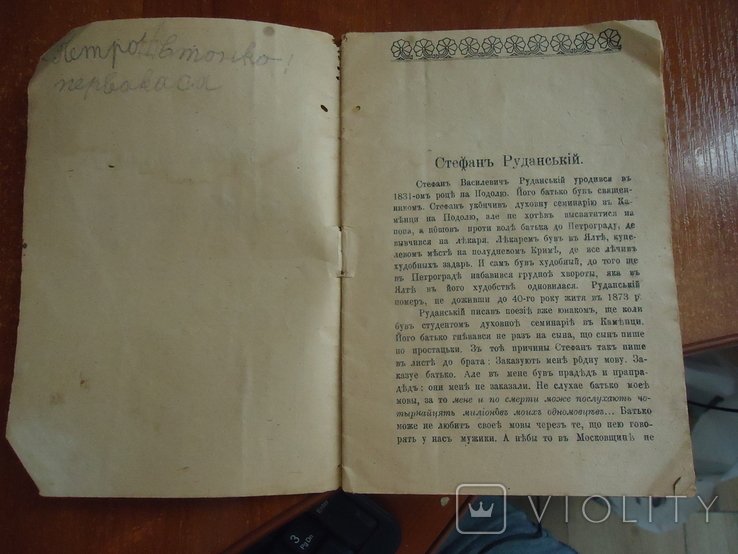 Петро
первакаса
Стефанъ Руданській.
Стефанъ Василевичъ Руданській уродився въ
1831-омъ роцѣ на Подолю. Його батько бувъ священ-
никомъ. Стефанъ укôнчивъ духовну семинарію въ Ка-
мѣнци на Подолю, але не хотѣвъ высвятитися на
попа, а пôшовъ проти волѣ батька до Петрограду, де
вывчився на лѣкаря. Лѣкаремъ бувъ въ Ялтѣ, купе-
левомъ мѣстѣ на полудневомъ Кримѣ, де все лѣчивъ
худобныхъ задарь. И самъ бувъ худобный, до того ще
въ Петроградѣ набавився грудноѣ хвороты, яка въ
Ялтѣ въ його худобствѣ одновилася. Руданській
померъ, не доживши до 40-го року житя въ 1873 р.
Руданській писавъ поезіѣ вже юнакомъ, ще коли
бувъ студентомъ духовноѣ семинаріѣ въ Камѣнци.
Його батько гнѣвався не разъ на сына, що сынъ пише
по простацьки. Зъ тоѣ причины Стефанъ такъ пише
въ листѣ до брата: Заказуютъ менѣ рôдну мову. За-
казуе батько. Але въ мене бувъ прадѣдъ и прапра-
дѣдъ: они менѣ не заказали. Не слухае батько моеѣ
мовы, за то мене и по смерти може послухаютъ чо-
тырнайцять милiоновъ моихъ одномовцѣвъ... Батько
може не любитъ своеѣ мовы черезъ те, що нею гово-
рятъ у насъ мужики. А нѣбы то въ Московщинѣ не
3
PgDn
Enter
VIOLITY